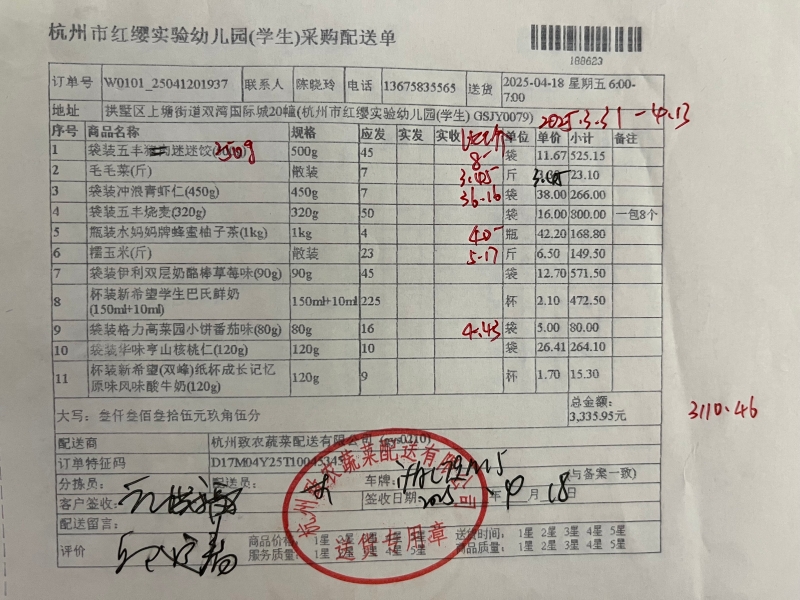 杭州市红缨实验幼儿园(学生)采购配送单
188623
订单号 W0101_25041201937 联系人 陈晓玲 电话 13675835565 送货 2025-04-18 星期五 6:00-7:00
地址 拱墅区上塘街道双湾国际城20幢(杭州市红缨实验幼儿园(学生) GSJY0079)
2025.3.31-4.13
序号 商品名称 规格 应发 实发 实收 单位 单价 小计 备注
1 袋装五丰 迷迷饺 250g 500g 45 8 袋 11.67 525.15
2 毛毛菜(斤) 散装 7 3.05 斤 3.05 23.10
3 袋装冲浪青虾仁(450g) 450g 7 36.16 袋 38.00 266.00
4 袋装五丰烧麦(320g) 320g 50 袋 16.00 800.00 一包8个
5 瓶装水妈妈牌蜂蜜柚子茶(1kg) 1kg 4 40 瓶 42.20 168.80
6 糯玉米(斤) 散装 23 5.17 斤 6.50 149.50
7 袋装伊利双层奶酪棒草莓味(90g) 90g 45 袋 12.70 571.50
8 杯装新希望学生巴氏鲜奶(150ml+10ml) 150ml+10ml 225 杯 2.10 472.50
9 袋装格力高菜园小饼番茄味(80g) 80g 16 4.43 袋 5.00 80.00
10 袋装华味亨山核桃仁(120g) 120g 10 袋 26.41 264.10
11 杯装新希望(双峰)纸杯成长记忆原味风味酸牛奶(120g) 120g 9 杯 1.70 15.30
大写：叁仟叁佰叁拾伍元玖角伍分 总金额：3,335.95元
3110.46
配送商 杭州致农蔬菜配送有限公司
订单特征码 D17M04Y25T10045345
分拣员： 配送员： 车牌： (与备案一致)
客户签收： 签收日期： 2025 年 4 月 18 日
配送留言：
评价 商品价格： 1星 2星 3星 4星 5星 送货时间： 1星 2星 3星 4星 5星
服务质量： 1星 2星 3星 4星 5星 商品质量： 1星 2星 3星 4星 5星
杭州致农蔬菜配送有限公司
送货专用章